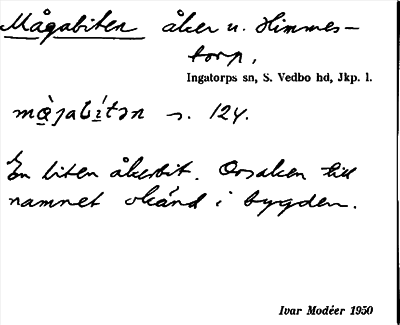 Mågabiten åker u. Himmes-
torp.
Ingatorps sn, S. Vedbo hd, Jkp. l.
s. 124.
En liten åkerbit. Orsaken till
namnet okänd i bygden.
Ivar Modéer 1950